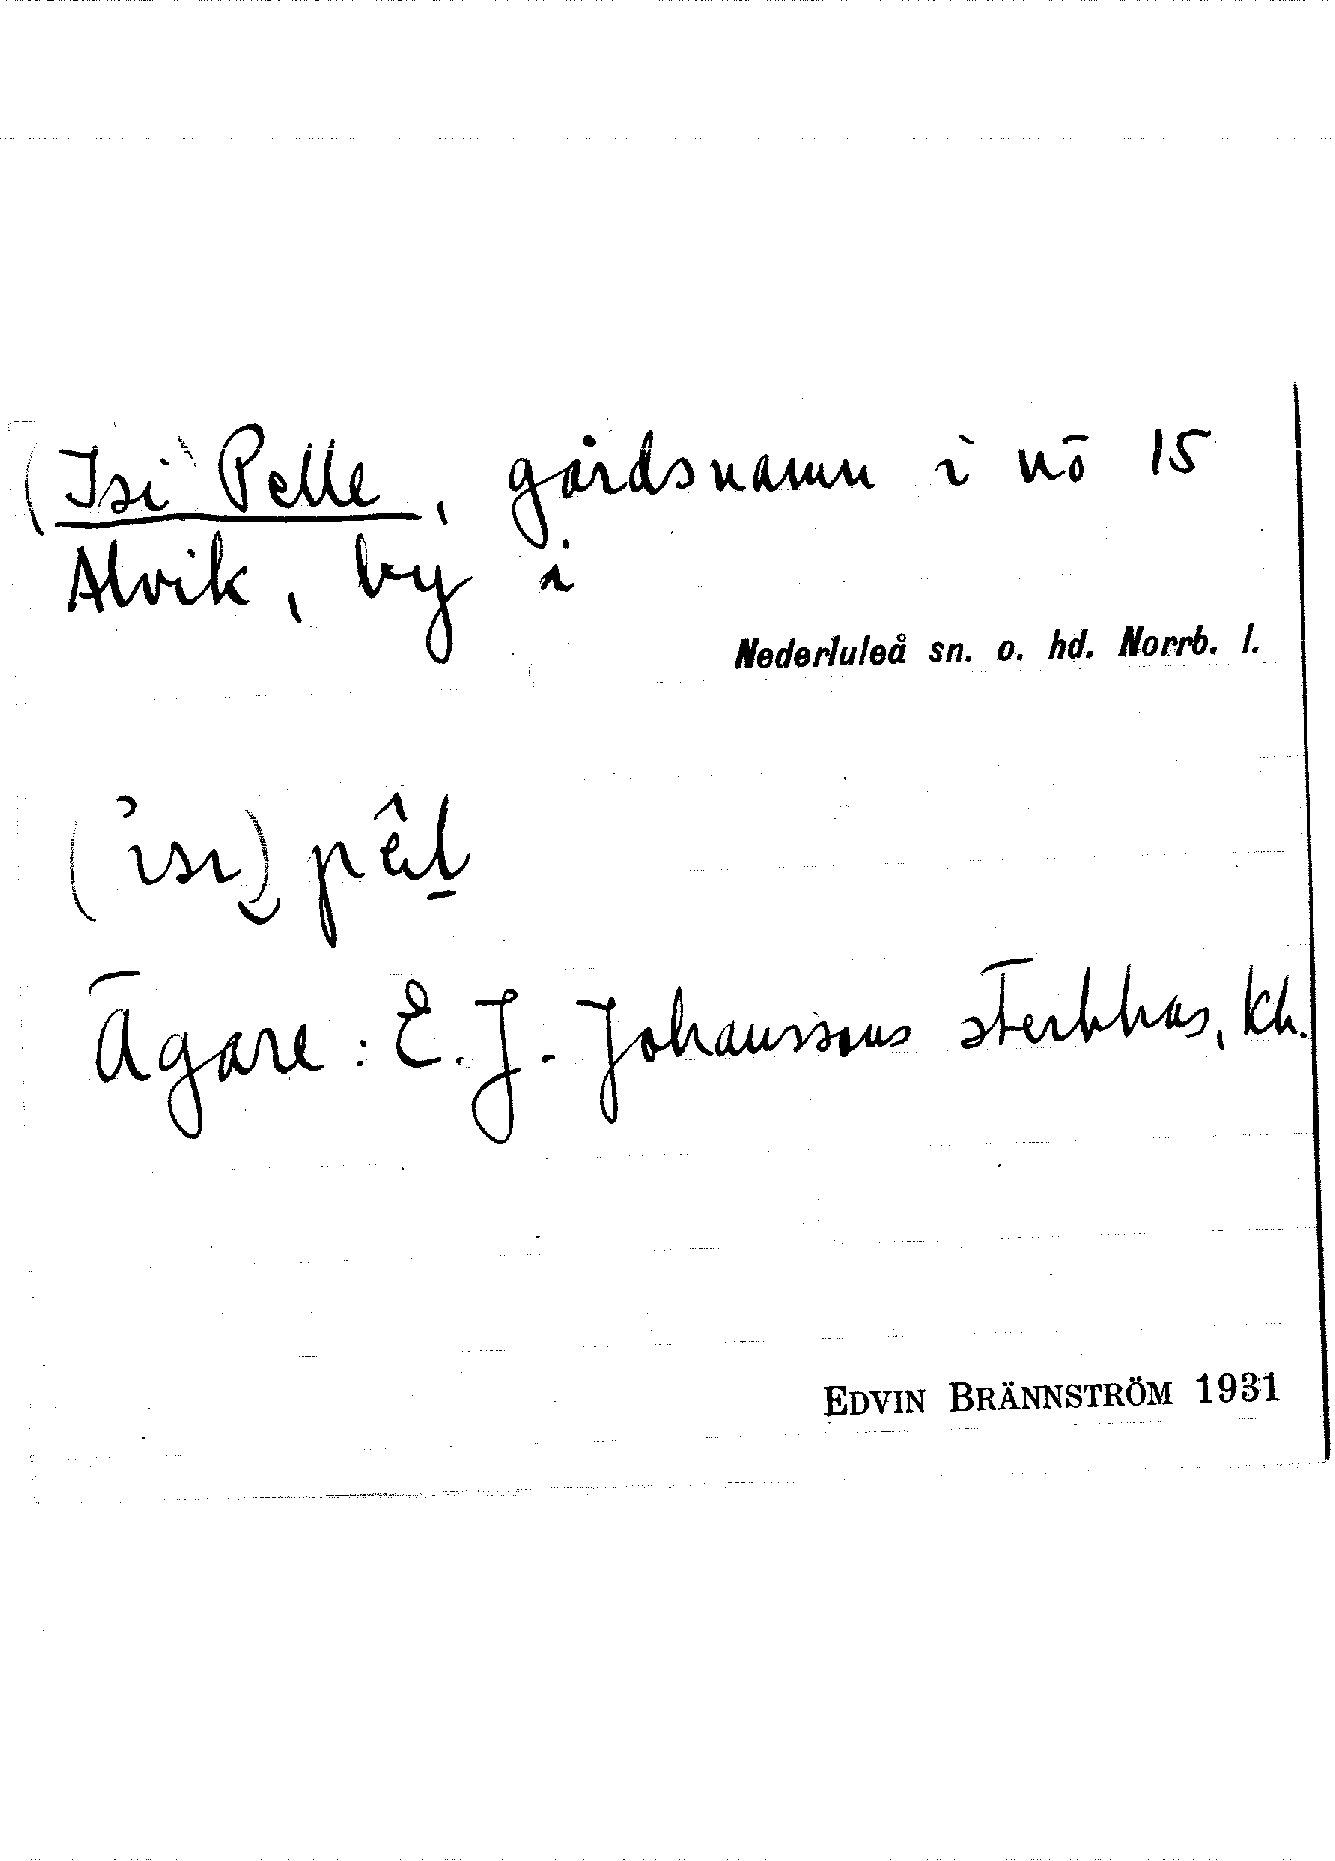 (Isi) Pelle, gårdsnamn i nō 15
Alvik, by i
Nederluleå sn. o. hd. Norrb. l.
Ägare: E. J. Johanssons sterbhus, kh.
EDVIN BRÄNNSTRÖM 1931